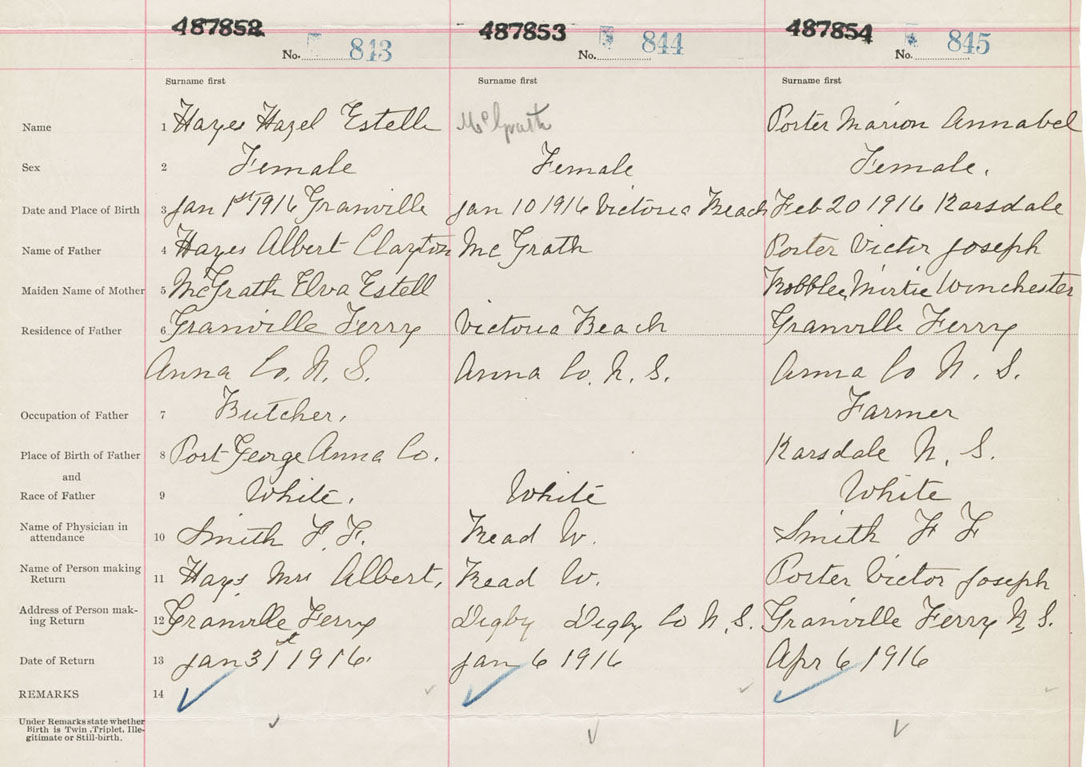 487852 487853 487854
No. 843 No. 844 No. 845
Surname first Surname first Surname first
Name 1 Hayes Hazel Estelle McGrath Porter Marion Annabel
Sex 2 Female Female Female.
Date and Place of Birth 3 Jan 1st 1916 Granville Jan 10 1916 Victoria Beach Feb 20 1916 Karsdale
Name of Father 4 Hayes Albert Clayton Mc Grath Porter Victor Joseph
Maiden Name of Mother 5 McGrath Elva Estell Winchester
Residence of Father 6 Granville Ferry Victoria Beach Granville Ferry
Anna Co. N. S. Anna Co. N. S. Anna Co N. S.
Occupation of Father 7 Butcher. Farmer
Place of Birth of Father 8 Port George Anna Co. Karsdale N. S.
and
Race of Father 9 White. White White
Name of Physician in
attendance 10 Smith F. F. Read W. Smith F F
Name of Person making
Return 11 Hays Mrs Albert. Read W. Porter Victor Joseph
Address of Person mak-
ing Return 12 Granville Ferry Digby Digby Co N. S. Granville Ferry N. S.
Date of Return 13 Jan 31st 1916. Jan 6 1916 Apr 6 1916
REMARKS 14
Under Remarks state whether
Birth is Twin, Triplet, Ille-
gitimate or Still-birth.